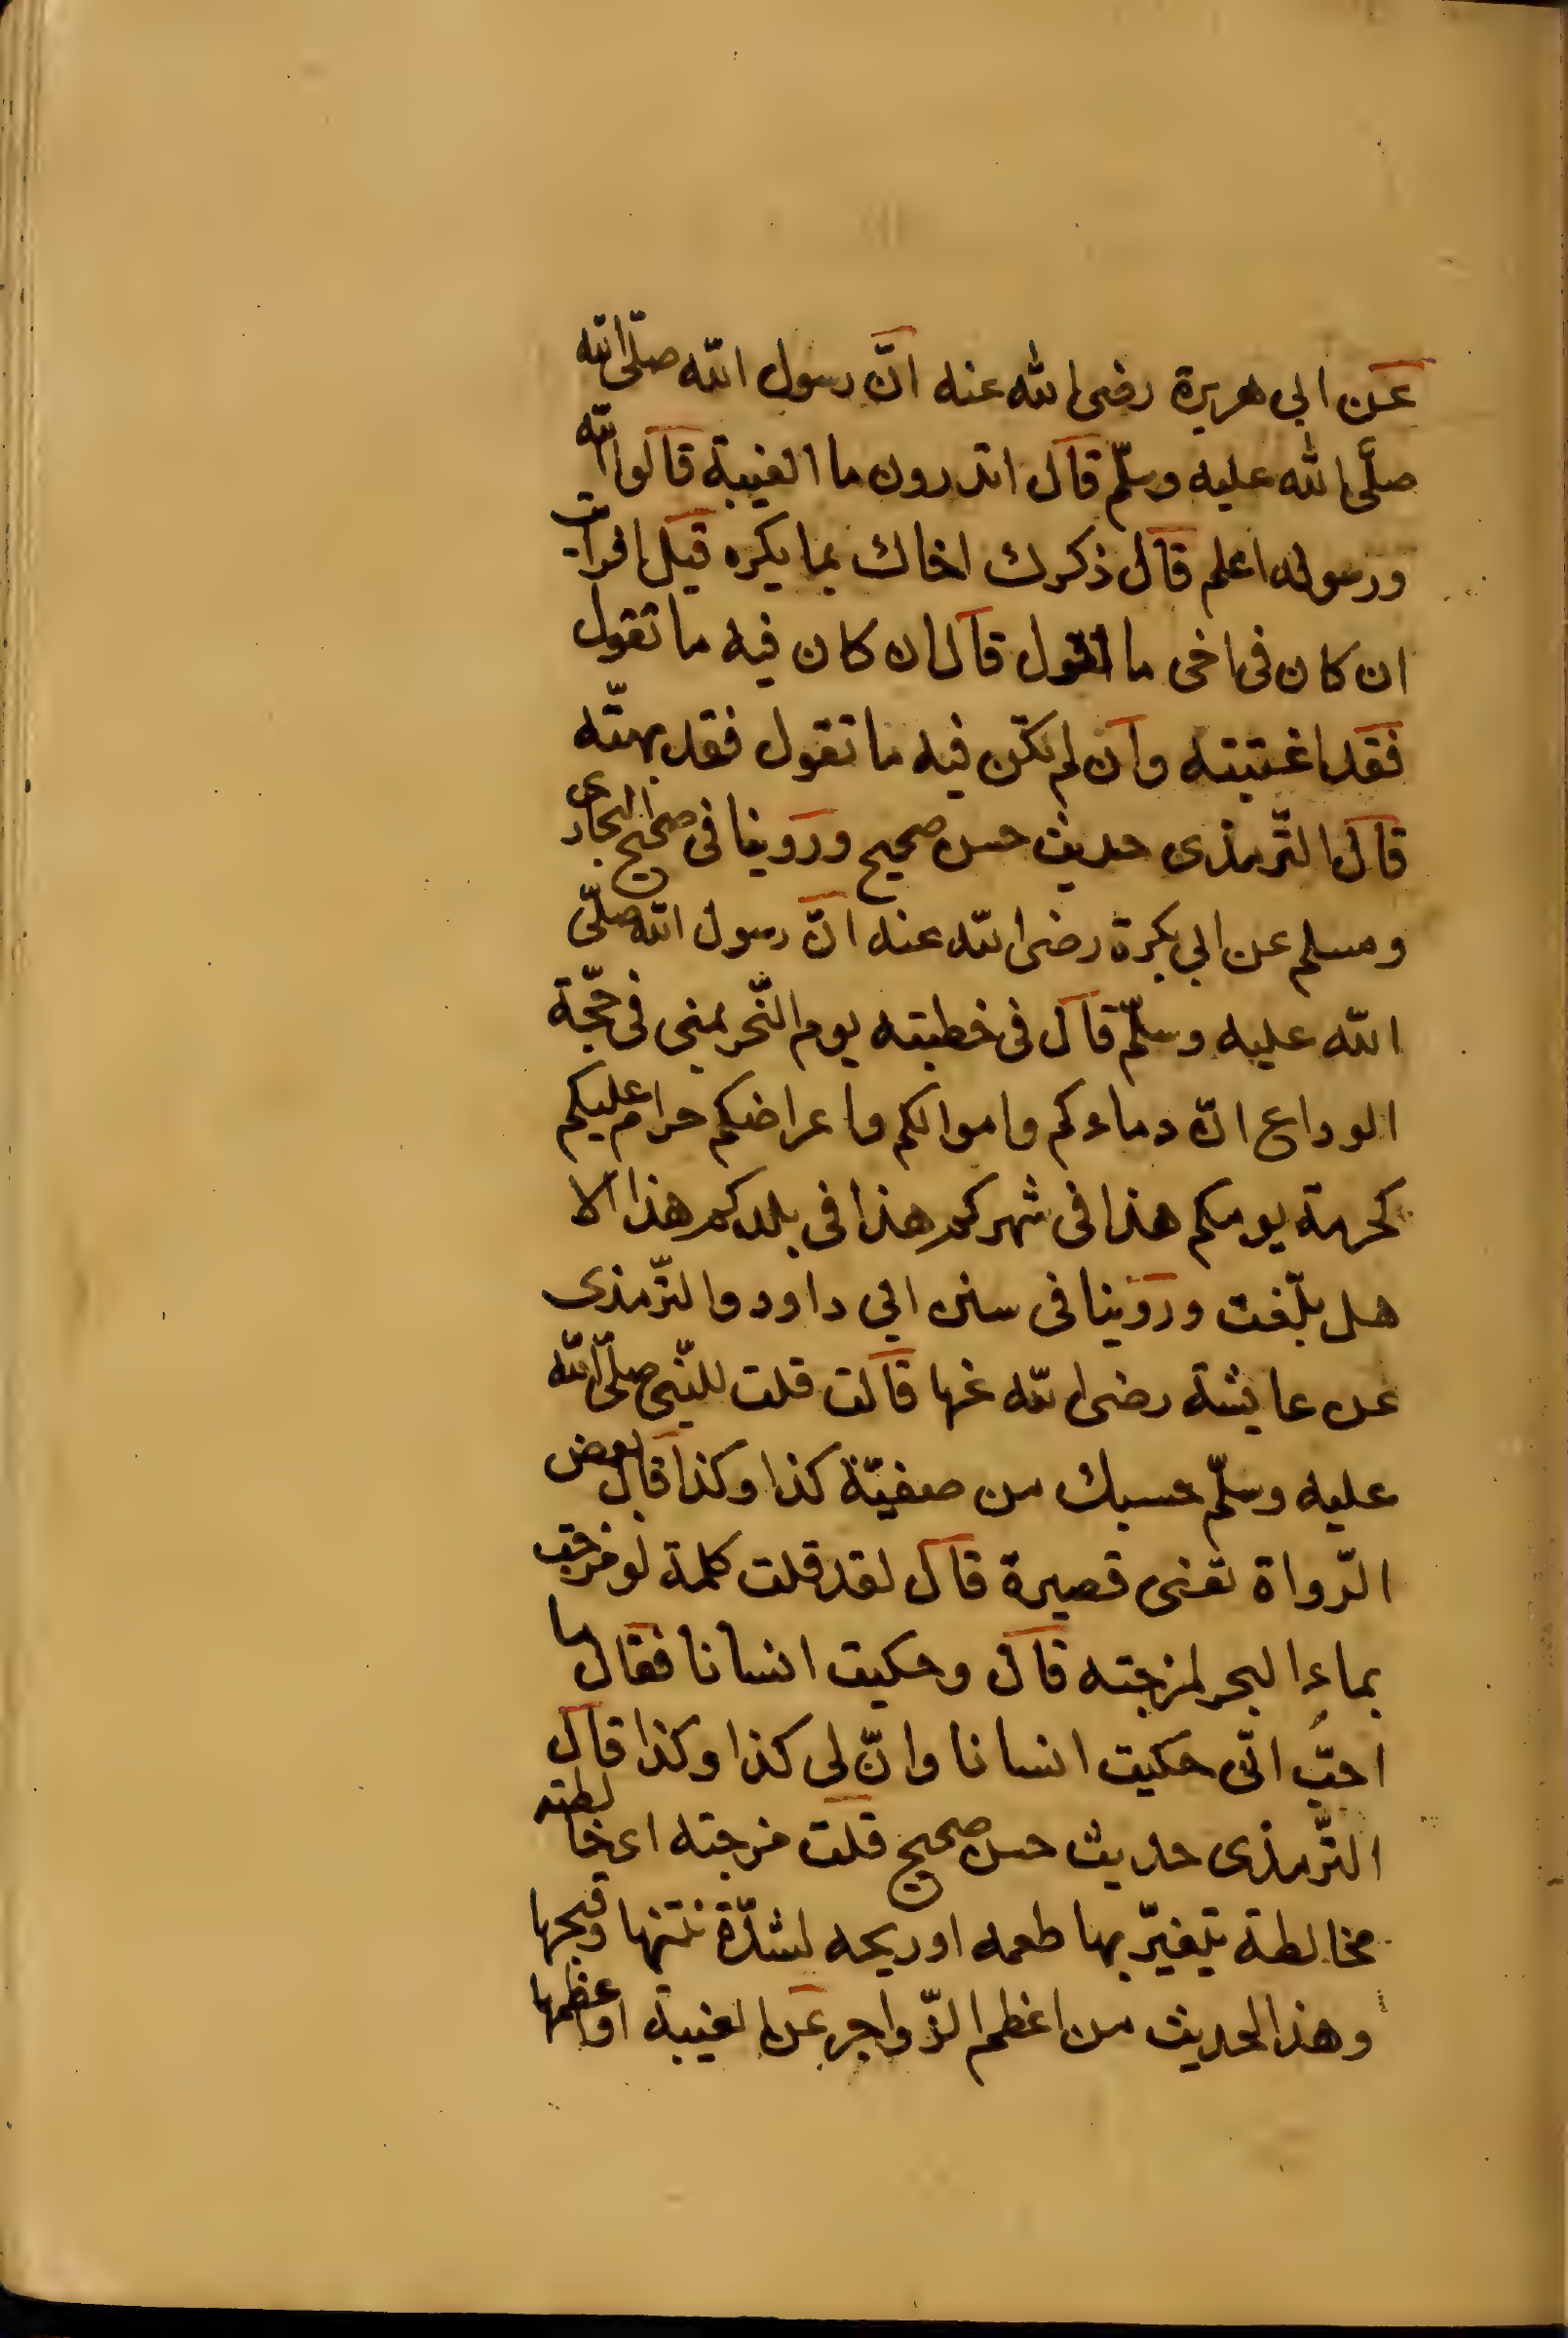 عن ابي هريرة رضى الله عنه انّ رسول الله صلّى الله
صلّى الله عليه وسلّم قال اتدرون ما الغيبة قالوا الله
ورسوله اعلم قال ذكرك اخاك بما يكره قيل افرايت
ان كان فى اخى ما اقول قال ان كان فيه ما تقول
فقد اغتبته وان لم يكن فيه ما تقول فقد بهتّه
قال التّرمذى حديث حسن صحيح وروينا فى صحيح البخارى
ومسلم عن ابي بكرة رضى الله عنه انّ رسول الله صلّى
الله عليه وسلّم قال فى خطبته يوم النّحر بمنى فى حجّة
الوداع انّ دماءكم واموالكم واعراضكم حرام عليكم
كحرمة يومكم هذا فى شهركم هذا فى بلدكم هذا الا
هل بلّغت وروينا فى سنن ابي داود والتّرمذى
عن عايشة رضى الله عنها قالت قلت للنّبى صلّى الله
عليه وسلّم حسبك من صفيّة كذا وكذا قال بعض
الرّواة تعنى قصيرة قال لقد قلت كلمة لو مزجت
بماء البحر لمزجته قال وحكيت انسانا فقال ما
احبّ انّى حكيت انسانا وانّ لى كذا وكذا قال
التّرمذى حديث حسن صحيح قلت مزجته اى خالطته
مخالطة يتغيّر بها طعمه او ريحه لشدّة نتنها وقبحها
وهذا الحديث من اعظم الزّواجر عن الغيبة او اعظمها